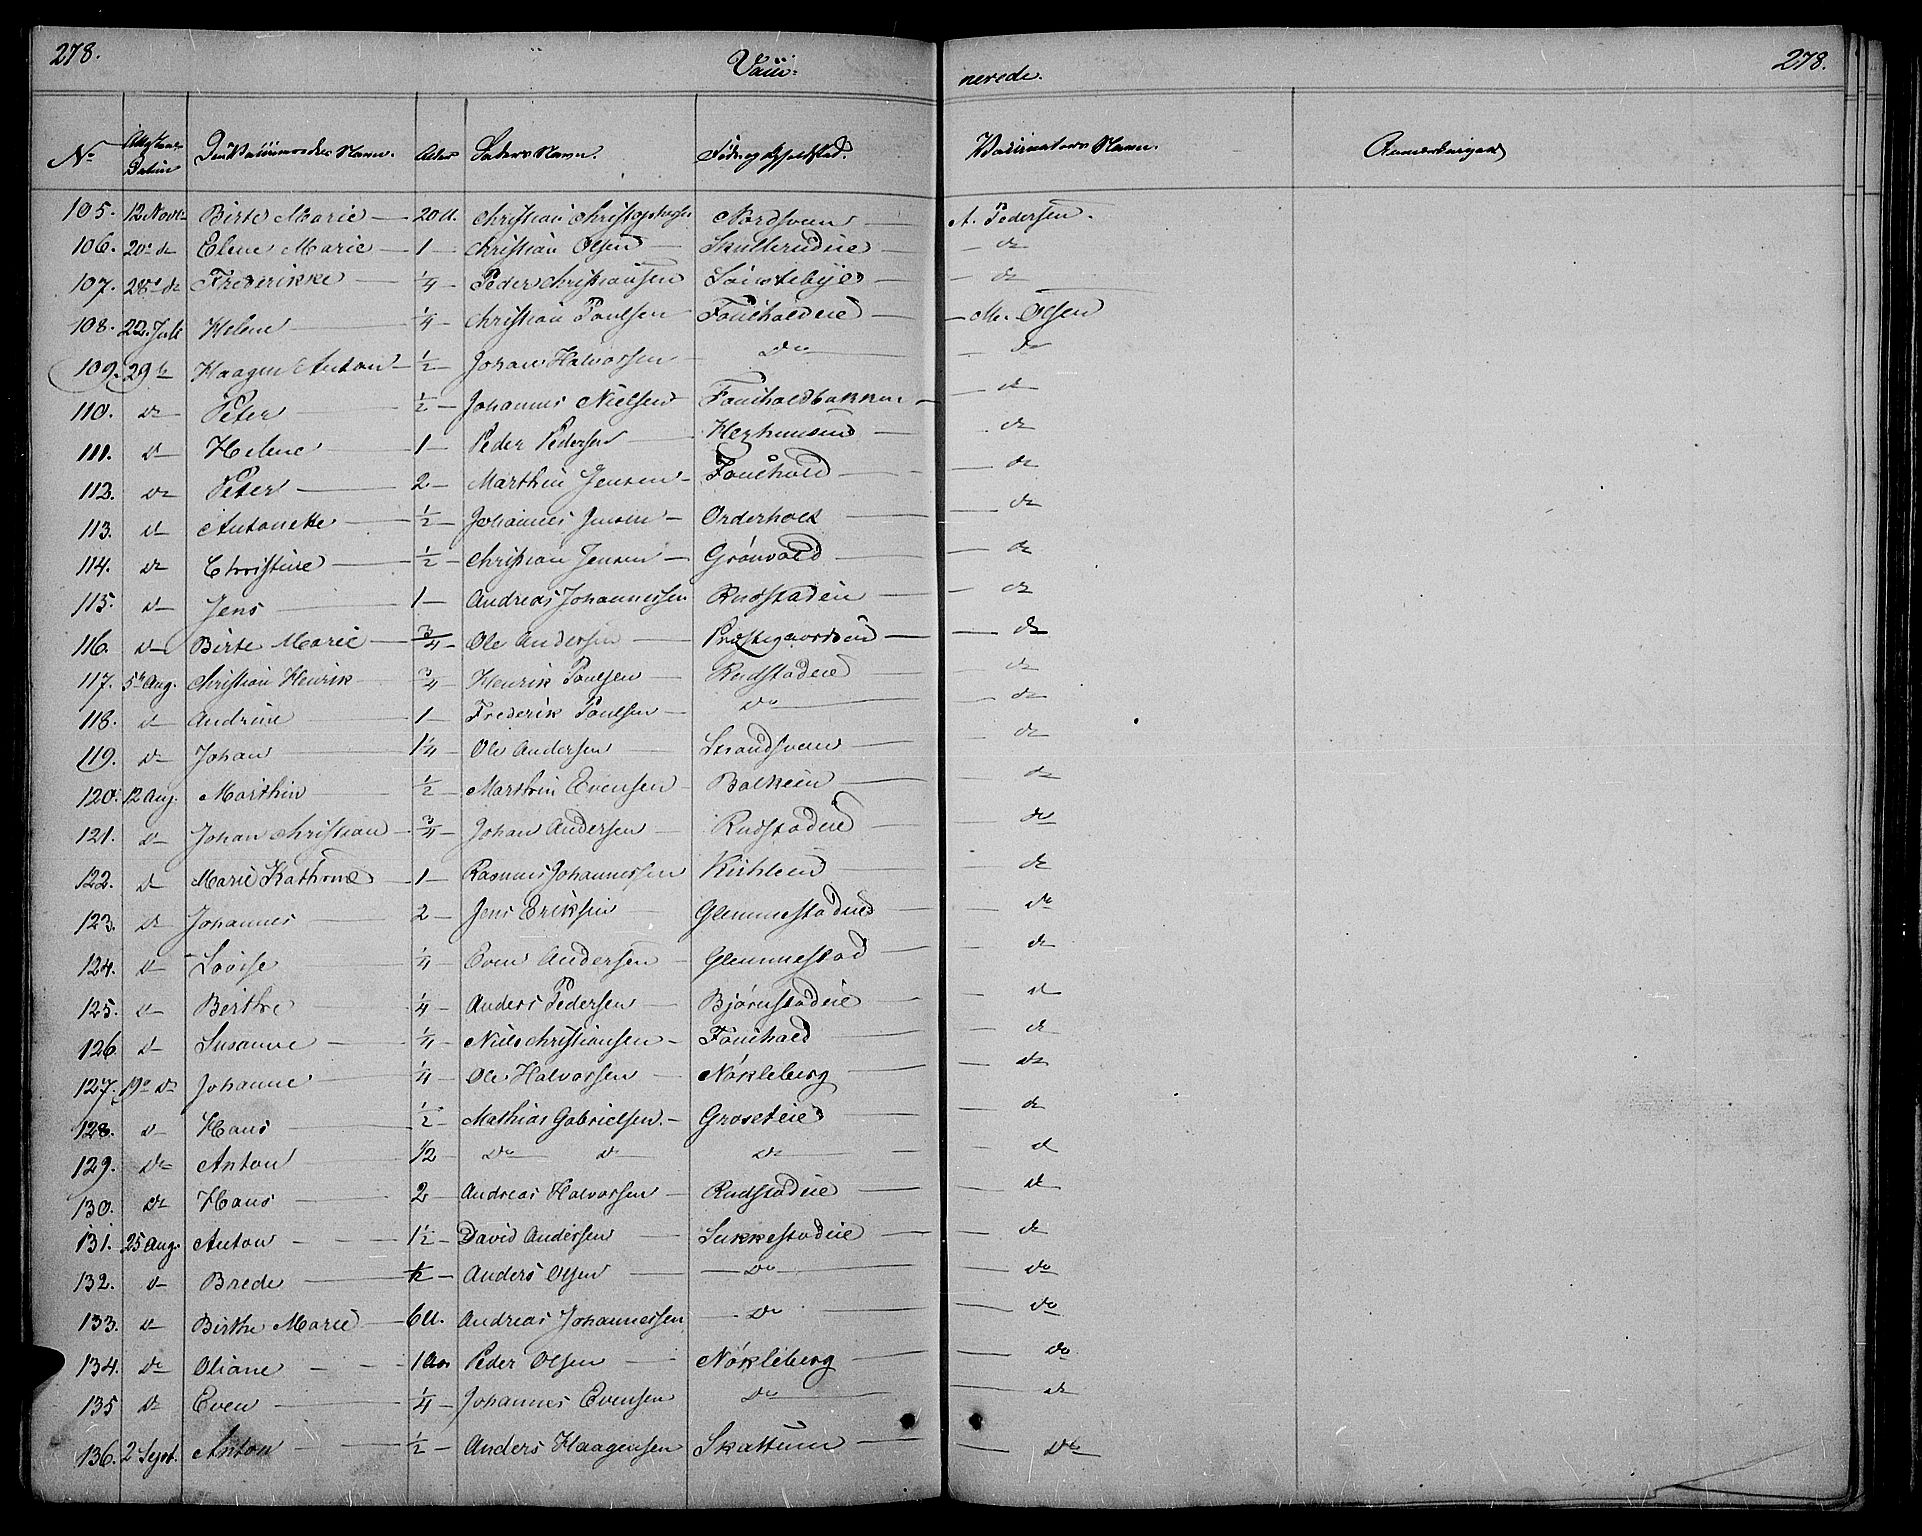 278. Vaiii- nerede. 278.
No Attestens Datum Den Vaccineredes Navn. Alder Faders Navn. Føde og Opholdsted. Vaccinatørs Navn. Anmærkninger
105. 12 Novr Birte Marie 20 U. Christian Christophers Nordsveen A. Pedersen.
106. 20de do Elene Marie 1 Christian Olsen Skullerudeie do
107. 28de do Frederikke 1/4 Peder Christiansen Sönstebye do
108. 22. Juli Helene 1/4 Christian Poulsen Fouchaldeie M. Olsen
109. 29 do Haagen Anton 1/2 Johan Halvorsen Do do
110. do Peter 1/2 Johannes Nielsen Fouchaldbakken do
111. do Helene 1 Peder Pedersen do
112. do Peter 2 Marthin Jensen Fouchald do
113. do Antonette 1/2 Johannes Jensen Orderholt do
114. do Christine 1/2 Christian Jensen Grönvold do
115. do Jens 1 Andreas Johannessen Rudstadeie do
116. do Birte Marie 3/4 Ole Andersen Præstegaardseie do
117. 5te Aug. Christian Henrik 3/4 Henrik Poulsen Rudstadeie do
118. do Andrine 1 Frederik Poulsen Do do
119. do Johan 1 1/4 Ole Andersen Strandsveen do
120. 12 Aug. Marthin 1/2 Marthin Evensen Balkeeie do
121. do Johan Christian 3/4 Johan Andersen Rudstadeie do
122. do Marie Kathrine 1 Rasmus Johannessen do
123. do Johannes 2 Jens Eriksen Glemmestadeie do
124. do Lovise 1/4 Even Andersen Glemmestad do
125. do Berthe 1/4 Anders Pedersen Bjørnstadeie do
126. do Susanne 1/4 Niels Christiansen Fouchald do
127. 19de do Johanne 1/4 Ole Halvorsen Nøkleberg do
128. do Hans 1/2 Mathias Gabrielsen. Groseteie do
129. do Anton 1/2 Do do Do do
130. do Hans 2 Andreas Halvorsen Rudstadeie do
131. 25 Aug. Anton 1 1/2 David Andersen Sukkestadeie do
132. do Brede 1/2 Anders Olsen Do do
133. do Birthe Marie 6 U. Andreas Johannessen Do do
134. do Oliane 1 Aar Peder Olsen Nøkleberg do
135 do Even 1/4 Johannes Evensen Do do
136. 2 Sept. Anton 1/2 Anders Haagensen Skattum Do